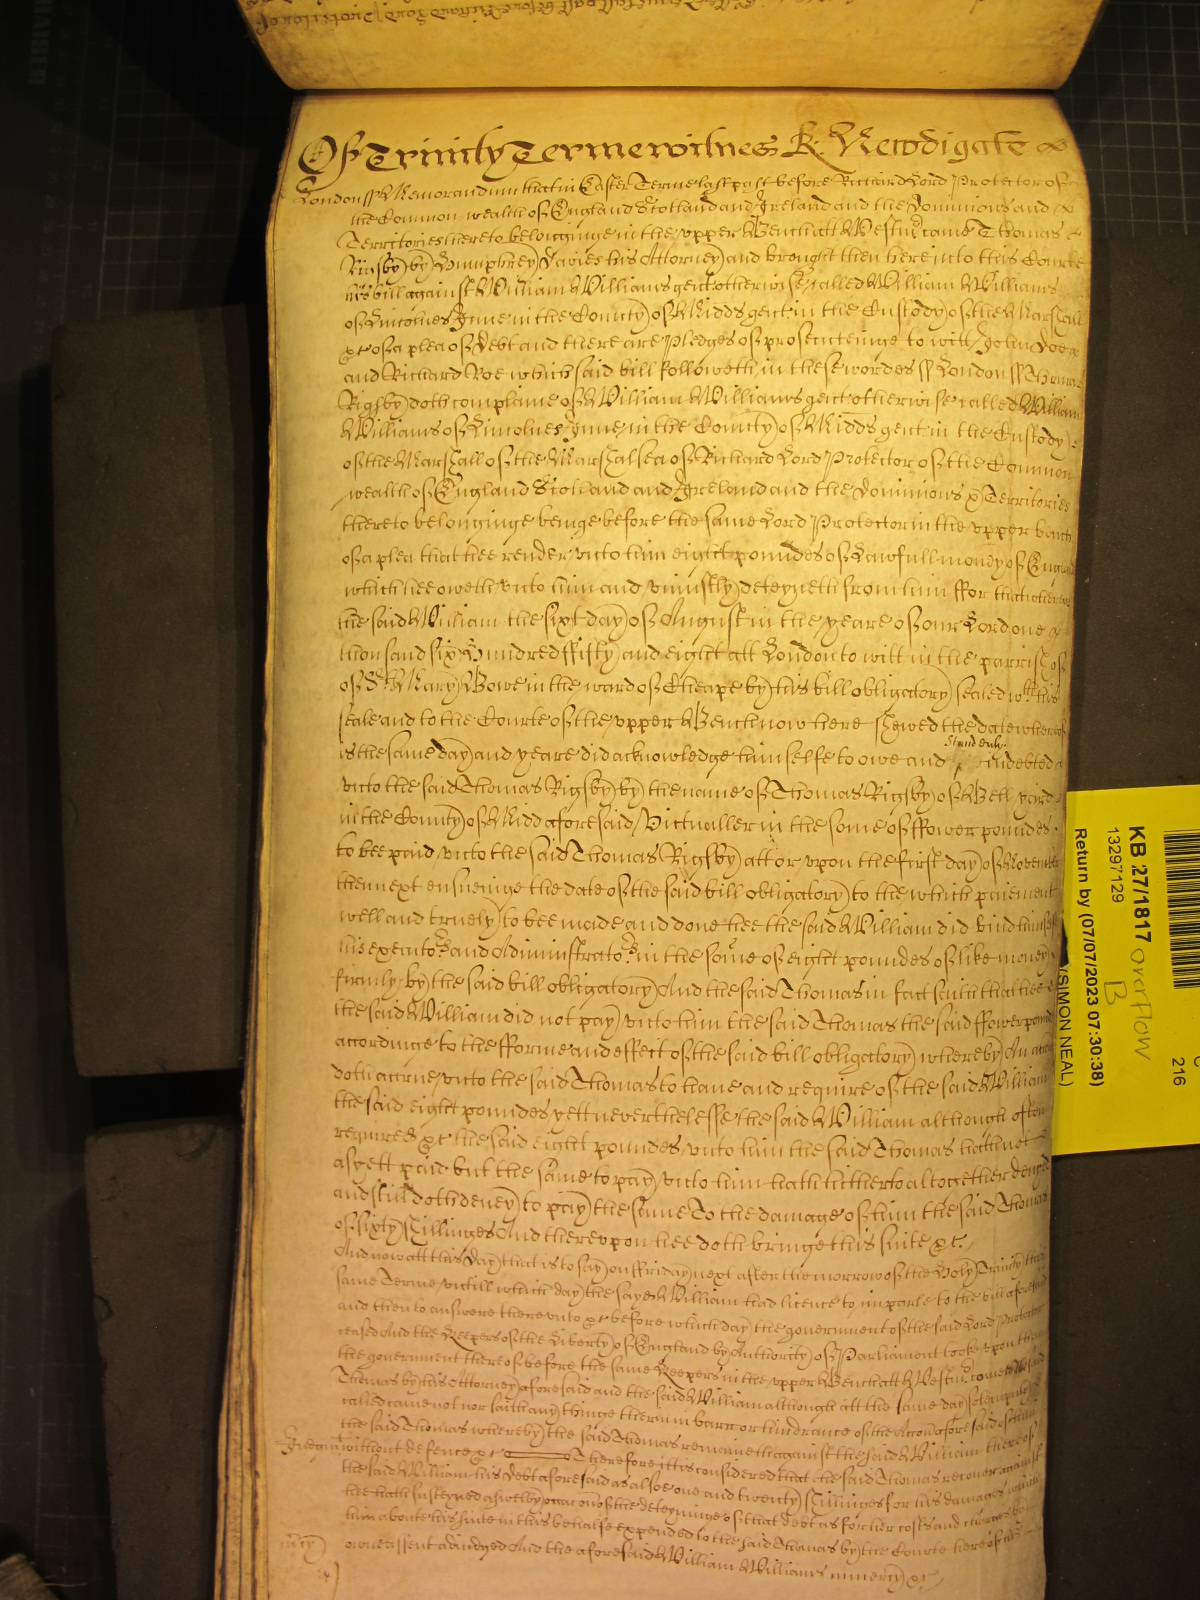 Of Trinity Terme witnes R: Newdigate
London ss Memorandum that in Easter Terme last past before Richard Lord Protector of
the Common wealth of England Scotland and Ireland and the Dominions and
Territories thereto belonginge in the upper Bench att Westmr came Thomas
Rigsby by Humphrey Davies his Attorney and brought then here into the Courte
his bill against William Williams gent otherwise called William Williams
of Lincolnes Inne in the County of Midds gent in the Custody of the Marshall
&c of a plea of Debt and there are Pledges of prosecuteinge to witt John Doe
and Richard Roe which said bill followeth in these wordes ss London ss Thomas
Rigsby doth complaine of William Williams gent otherwise called William
Williams of Lincolnes Inne in the County of Midds gent in the Custody
of the Marshall of the Marshalsea of Richard Lord Protector of the Common
wealth of England Scotland and Ireland and the Dominions & Territories
thereto belonginge beinge before the same Lord Protector in the upper bench
of a plea that hee render unto him eight poundes of Lawfull money of England
which hee oweth unto him and uniustly deteyneth from him ffor that whereas
the said William the sixt day of August in the yeare of our Lord one
thousand six Hundred ffifty and eight att London to witt in the parrish of
of St Mary Bowe in the ward of Cheape by his bill obligatory sealed wth his
seale and to the Courte of the upper Bench now here shewed the date whereof
is the same day and yeare did acknowledge himselfe to owe and indebted
unto the said Thomas Rigsby by the name of Thomas Rigsby of Bell yard
in the County of Midd aforesaid Victualler in the some of ffower poundes
to bee paid unto the said Thomas Rigsby att or upon the first day of November
then next ensueinge the date of the said bill obligatory to the which paiement
well and truely to bee made and done hee the said William did bind himself
his executors and Administrators in the some of eight poundes of like money
firmly by the said bill obligatory And the said Thomas in fact saith that hee
the said William did not pay unto him the said Thomas the said ffower pounds
accordinge to the fforme and effect of the said bill obligatory whereby An accon
doth accrue unto the said Thomas to have and require of the said William
the said eight poundes yett neverthelesse the said William although often
required &c the said eight poundes unto him the said Thomas hath not
as yett paid but the same to pay unto him hath hitherto altogether denyed
and still doth deney to pay the same To the damage of him the said Thomas
of sixty shillinges And thereupon hee doth bringe this suite &c.
And now att this day that is to say on ffriday next after the morrow of the Holy Trinity this
same Terme untill which day the sayd William had licence to imparle to the bill aforesaid
and then to answere thereunto &c before which day the government of the said Lord Protector
ceased And the Keepers of the Liberty of England by Authority of Parliament tooke upon them
the government thereof before the same Keepers in the upper Bench att Westmr cometh the said
Thomas by his Attorney aforesaid and the said William although att the same day solempnly
called came not nor saith any thinge therein in barr or hindrance of the Accon aforesaid of him
the said Thomas whereby the said Thomas remaineth against the said William thereof
without defence &c Therefore itt is considered that the said Thomas recover against
the said William his Debt aforesaid as alsoe one and twenty shillinges for his damages which
hee hath susteyned aswell by occacon of the deteyninge of that debt as for his costs and charges by
him about his suite in this behalfe expended to the said Thomas by the Courte here of his
owne assent adiudged And the aforesaid William Williams in mercy &c.
mcy
KB 27/1817 overflow
B
13297129
Return by (07/07/2023 07:30:38)
(SIMON NEAL)
216